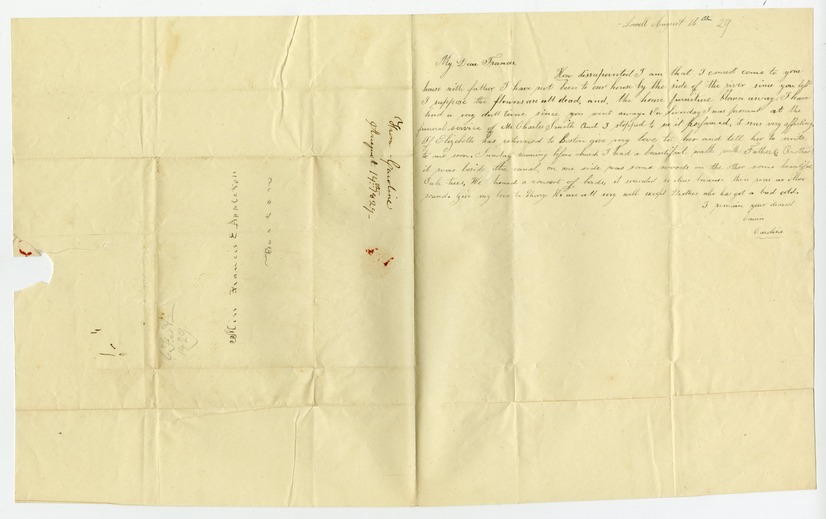 Lowell August 16th 29
My Dear Frances
How disappointed I am that I cannot come to your
house with father I have not been to our house by the side of the river since you left
I suppose the flowers are all dead, and, the house furniture blown away. I have
had a very dull time since you went away. On Sunday I was present at the
funeral service of Mr Charles Smith and I stopped to see it performed, it was very affecting
If Elizabeth has returned to Boston give my love to her and tell her to write
to me soon. Sunday morning before church I had a beautiful walk with Father &
it was beside the canal, on one side was some woods on the other some beautiful
Oak trees, We heard a concert of birds, it sounded so clear because there was no other
sound. Give my love to We are all very well except Mother who has got a bad cold.
I remain your dearest
Cousin
Caroline
From Caroline
August 1829
Miss Frances E Appleton
Boston
1829